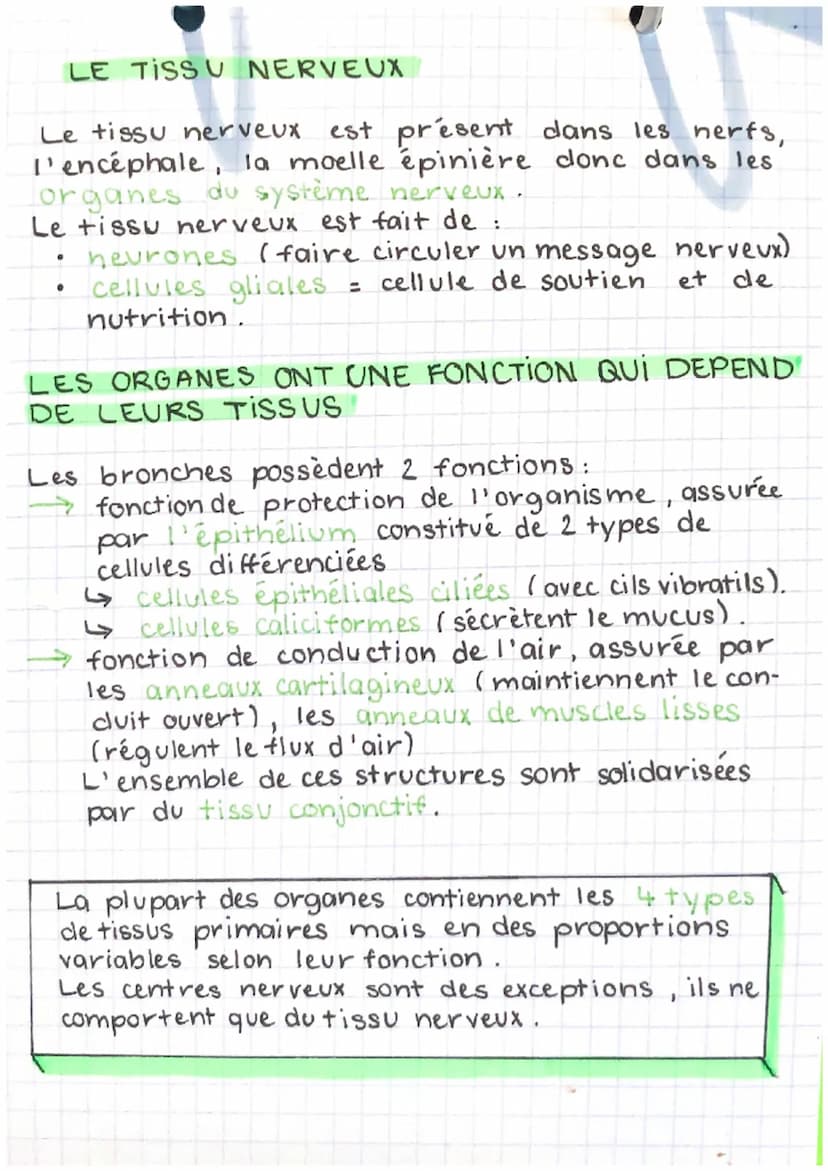 LE TISSU NERVEUX
Le tissu nerveux est présent dans les nerfs,
l'encéphale, la moelle épinière donc dans les
organes du système nerveux.
Le tissu nerveux est fait de :
• neurones (faire circuler un message nerveux)
• cellules gliales = cellule de soutien et de
nutrition.
LES ORGANES ONT UNE FONCTION QUI DEPEND
DE LEURS TISSUS
Les bronches possèdent 2 fonctions :
→ fonction de protection de l'organisme, assurée
par l'épithélium constitué de 2 types de
cellules différenciées
↳ cellules épithéliales ciliées (avec cils vibratils).
↳ cellules caliciformes (sécrètent le mucus).
→ fonction de conduction de l'air, assurée par
les anneaux cartilagineux (maintiennent le con-
duit ouvert), les anneaux de muscles lisses
(régulent le flux d'air)
L'ensemble de ces structures sont solidarisées
par du tissu conjonctif.
La plupart des organes contiennent les 4 types
de tissus primaires mais en des proportions
variables selon leur fonction.
Les centres nerveux sont des exceptions, ils ne
comportent que du tissu nerveux.